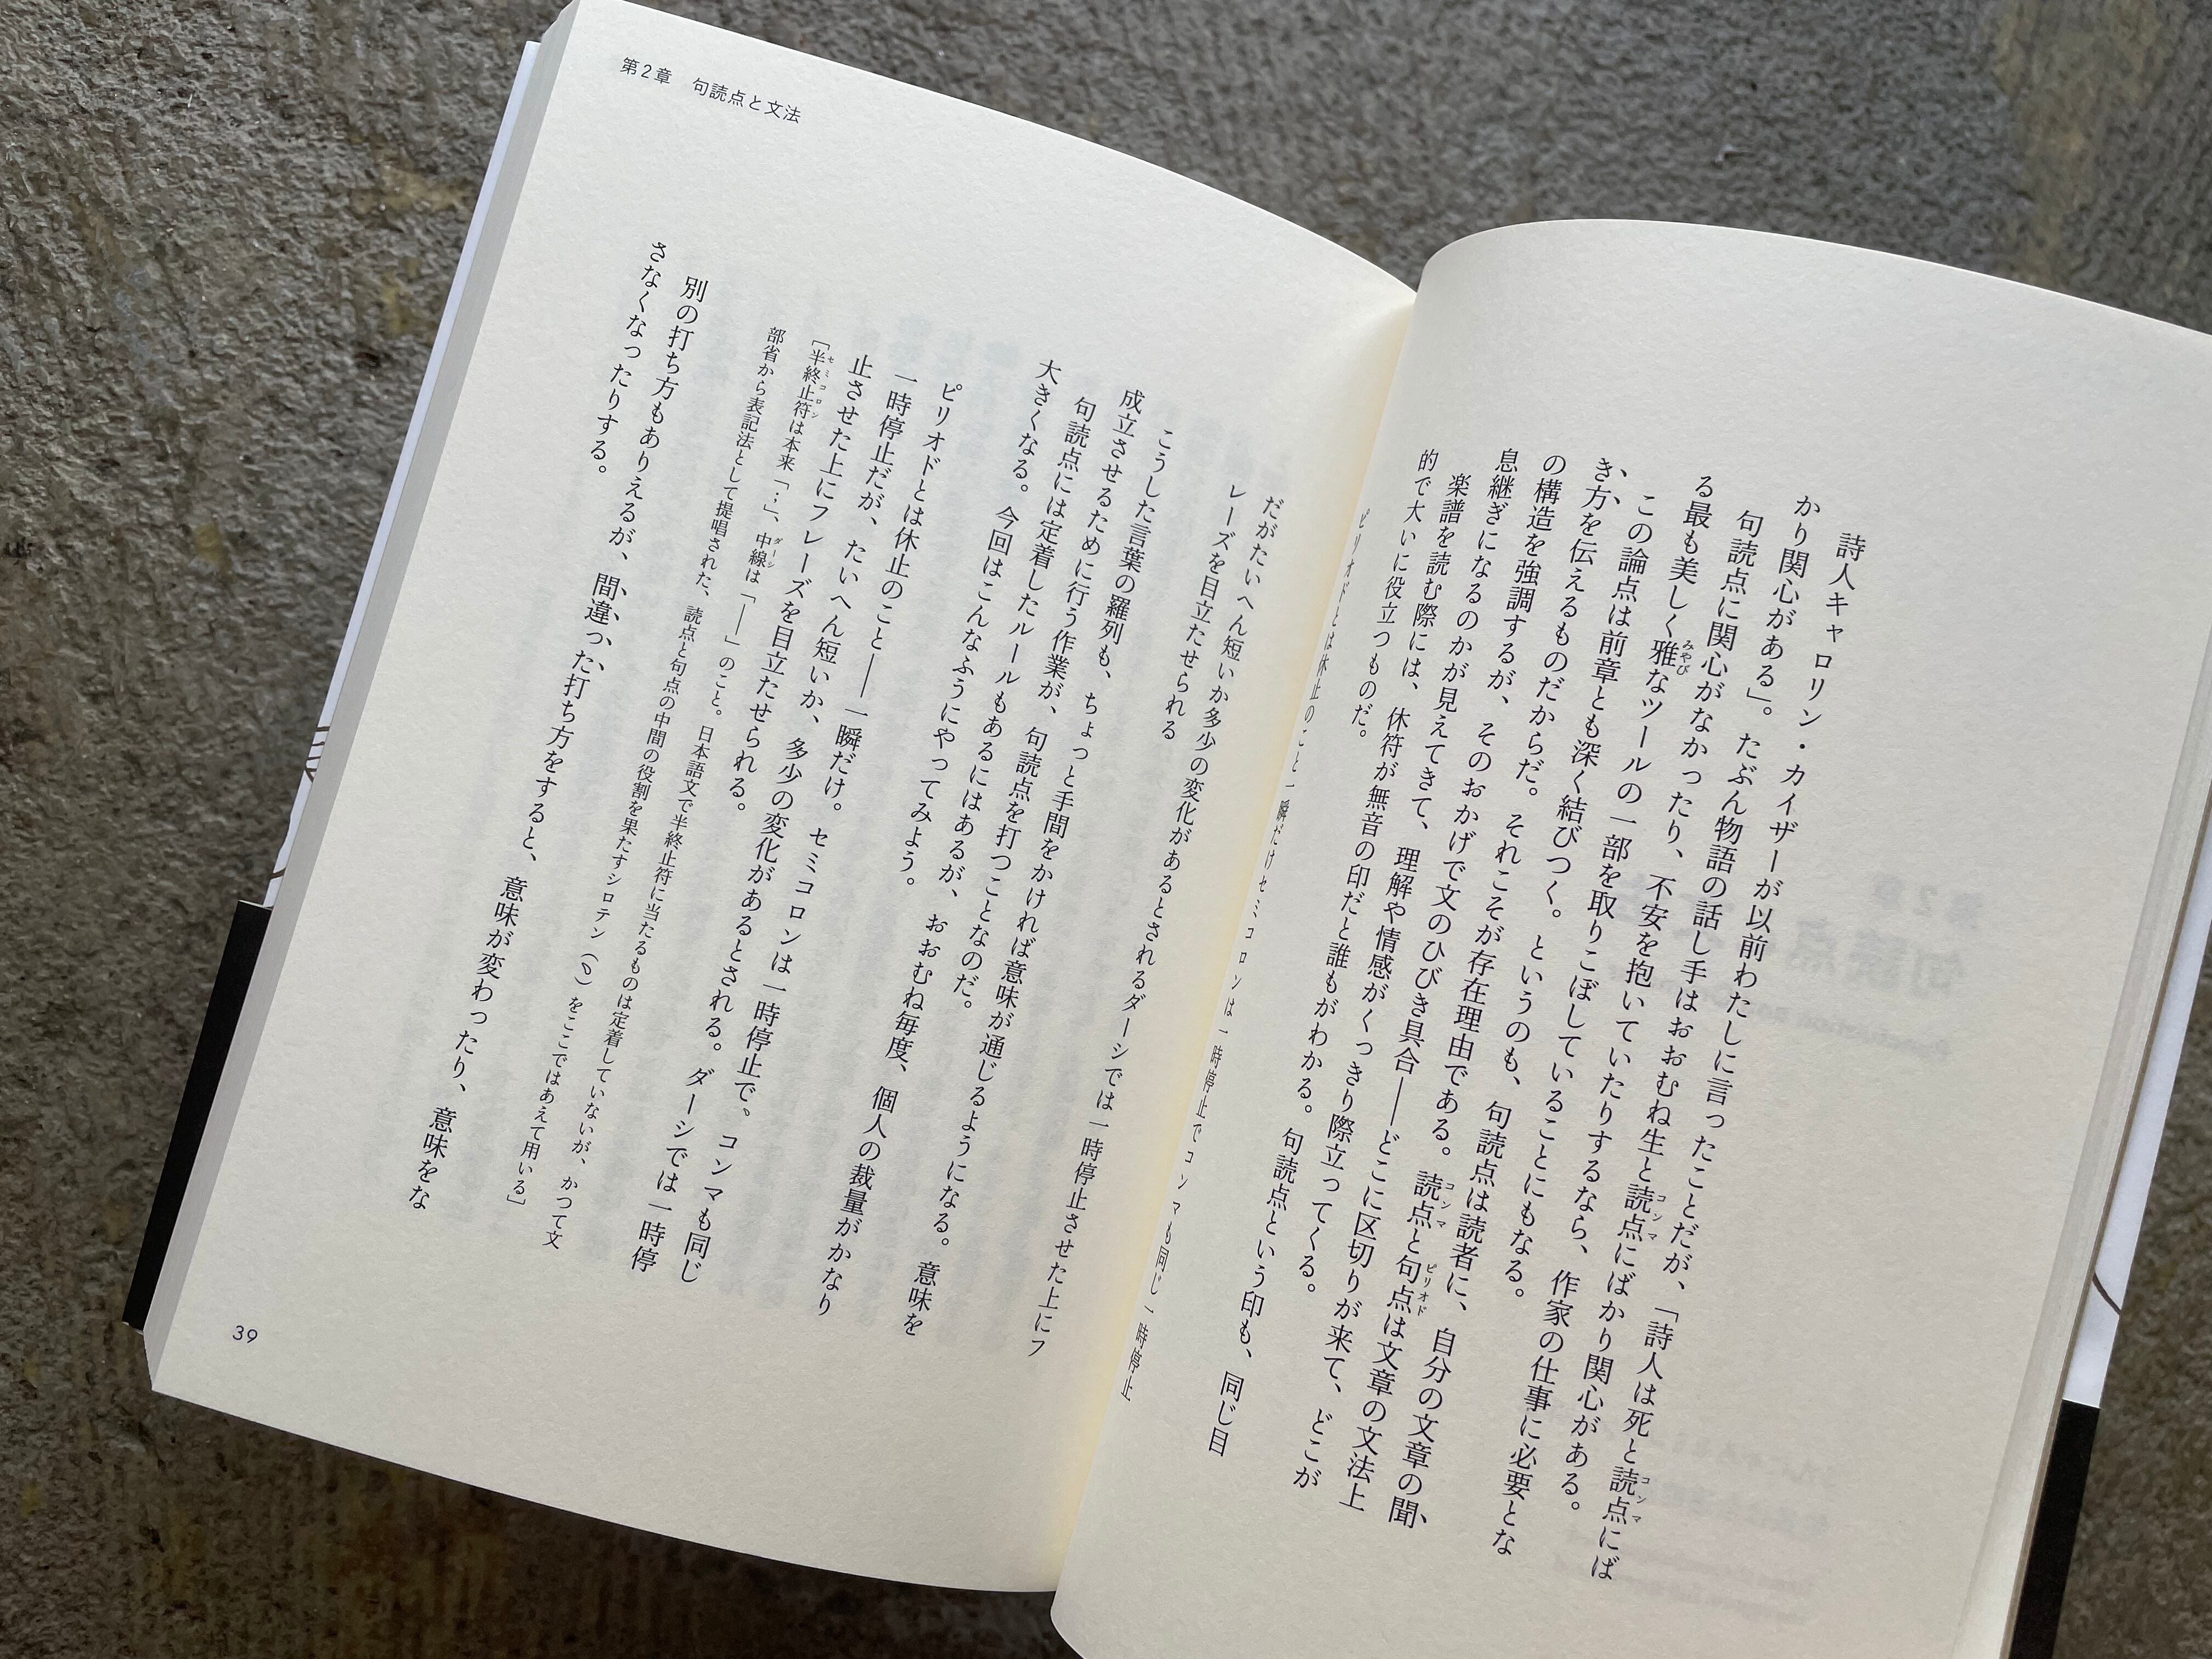 詩人キャロリン・カイザーが以前わたしに言ったことだが、「詩人は死と読点コンマにば
かり関心がある」。たぶん物語の話し手はおおむね生と読点コンマにばかり関心がある。
句読点に関心がなかったり、不安を抱いていたりするなら、作家の仕事に必要とな
る最も美しく雅みやびなツールの一部を取りこぼしていることにもなる。
この論点は前章とも深く結びつく。というのも、句読点は読者に、自分の文章の聞
き方を伝えるものだからだ。それこそが存在理由である。読点コンマと句点ピリオドは文章の文法上
の構造を強調するが、そのおかげで文のひびき具合――どこに区切りが来て、どこが
息継ぎになるのかが見えてきて、理解や情感がくっきり際立ってくる。
楽譜を読む際には、休符が無音の印だと誰もがわかる。句読点という印も、同じ目
的で大いに役立つものだ。
ピリオドとは休止のこと一瞬だけセミコロンは一時停止でコンマも同じ一時停止
第2章　句読点と文法
だがたいへん短いか多少の変化があるとされるダーシでは一時停止させた上にフ
レーズを目立たせられる
こうした言葉の羅列も、ちょっと手間をかければ意味が通じるようになる。意味を
成立させるために行う作業が、句読点を打つことなのだ。
句読点には定着したルールもあるにはあるが、おおむね毎度、個人の裁量がかなり
大きくなる。今回はこんなふうにやってみよう。
ピリオドとは休止のこと――一瞬だけ。セミコロンは一時停止で。コンマも同じ
一時停止だが、たいへん短いか、多少の変化があるとされる。ダーシでは一時停
止させた上にフレーズを目立たせられる。
［半終止符セミコロンは本来「；」、中線ダーシは「――」のこと。日本語文で半終止符に当たるものは定着していないが、かつて文
部省から表記法として提唱された、読点と句点の中間の役割を果たすシロテン（﹆）をここではあえて用いる］
別の打ち方もありえるが、間違った打ち方をすると、意味が変わったり、意味をな
さなくなったりする。
39